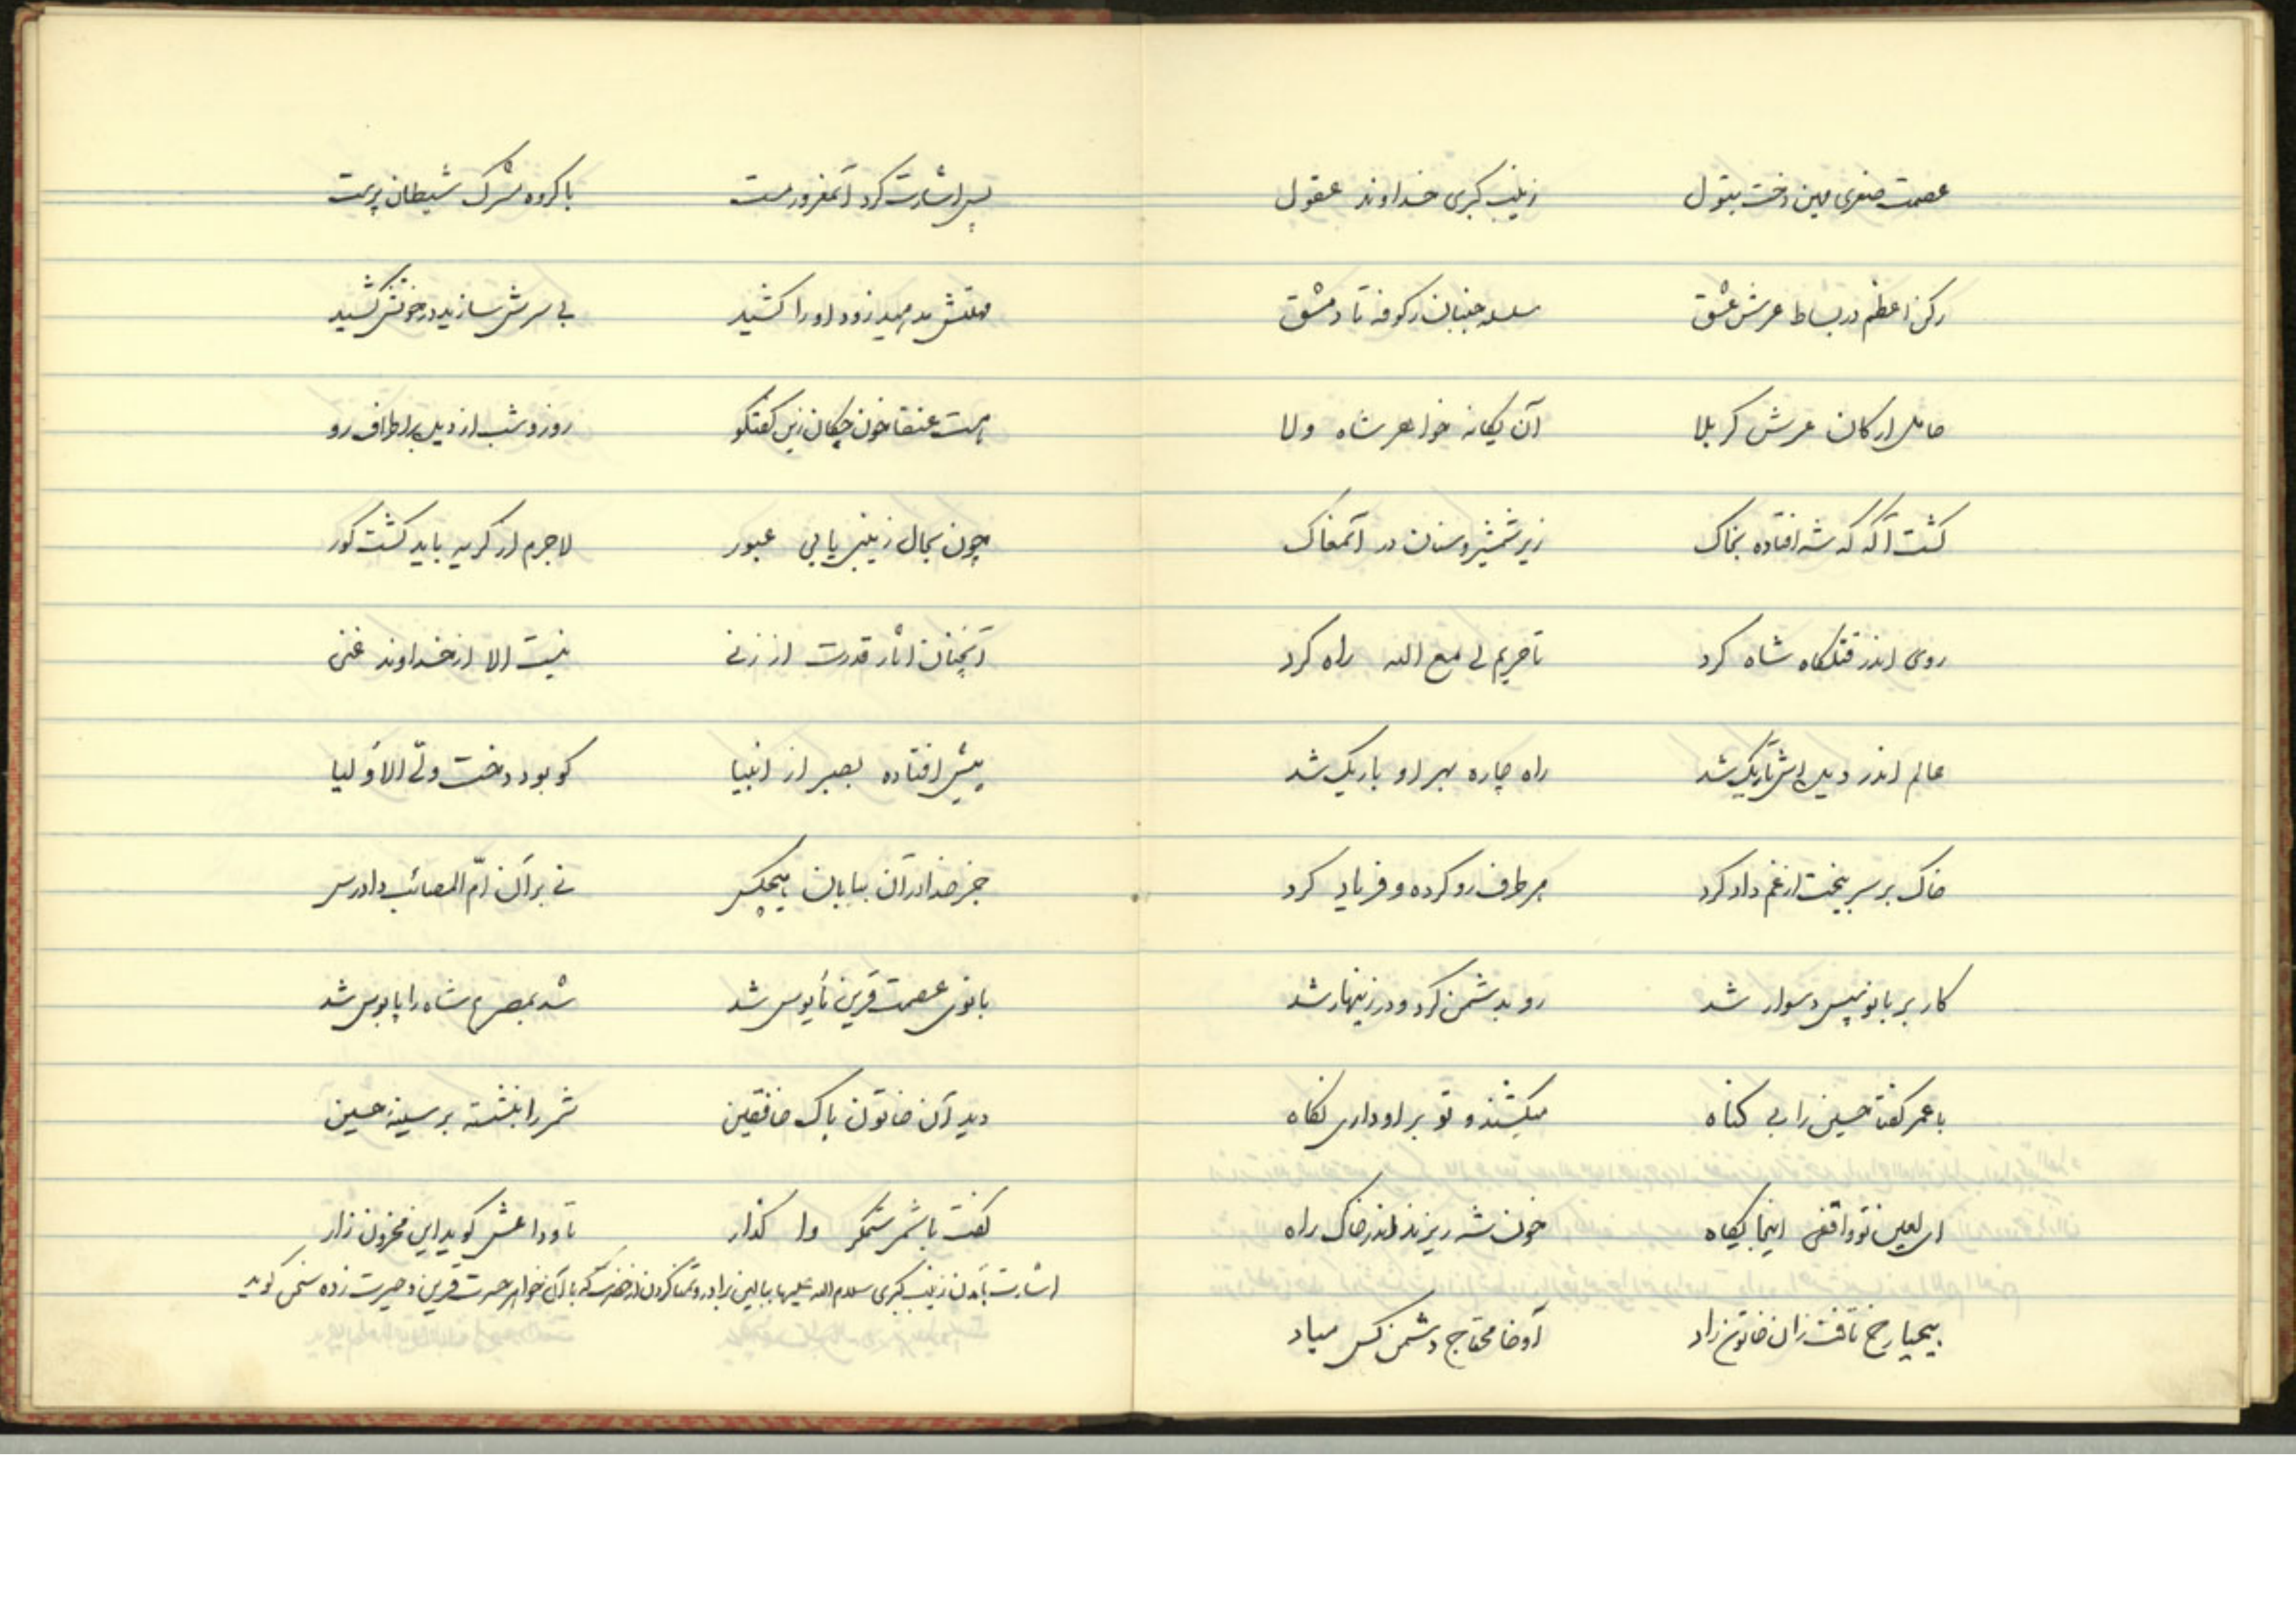 عصمت صغری مهین دخت بتول زینب کبری خداوند عقول
رکن اعظم در بساط عرش عشق سلسله جنبان ز کوفه تا دمشق
حامل ارکان عرش کربلا آن یگانه خواهر شاه ولا
گشت آگه که شه افتاده بخاک زیر شمشیر و سنان در آنمغاک
روی اندر قتلگاه شاه کرد تا حریم لی مع الله راه کرد
عالم اندر دیده‌اش تاریک شد راه چاره بهر او باریک شد
خاک بر سر بیخت از غم داد کرد هر طرف رو کرده و فریاد کرد
کار بر بانو پس دشوار شد رو بدشمن کرد و در زینهار شد
با عمر گفتا حسین را بی گناه میکشند و تو بر او داری نگاه
ای لعین تو واقفی اینجا بگاه خون شه ریزند اندر خاک راه
بیحیا رخ تافت زان خاتون زاد آوخا محتاج دشمن کس مباد
پس اشارت کرد آنمغرور مست با گروه مشرک شیطان پرست
مهلتش مدهید زود او را کشید بی سرش سازید در خونش کشید
هست عنقا خون چکان زین گفتگو روز و شب از دیده بر اطراف رو
چون بحال زینب یابی عبور لاجرم از گریه باید گشت کور
آنچنان اثار قدرت از زنی نیست الا از خداوند غنی
پیش افتاده بصبر از انبیا کو بود دخت ولّی الأولیا
جز خدا در آن بیابان هیچکس نی بر آن امّ المصائب دادرس
بانوی عصمت قرین مأیوس شد شد بمصرع شاه را پابوس شد
دید آن خاتون پاک خافقین شمر را بنشسته بر سینه حسین
گفت با شمر ستمگر وا گذار تا وداعش گوید این محزون زار
اشارت بآمدن زینب کبری سلام الله علیها ببالین برادر و تمنا کردن از حضرت که با آن خواهر حسرت قرین و حیرت زده سخن گوید